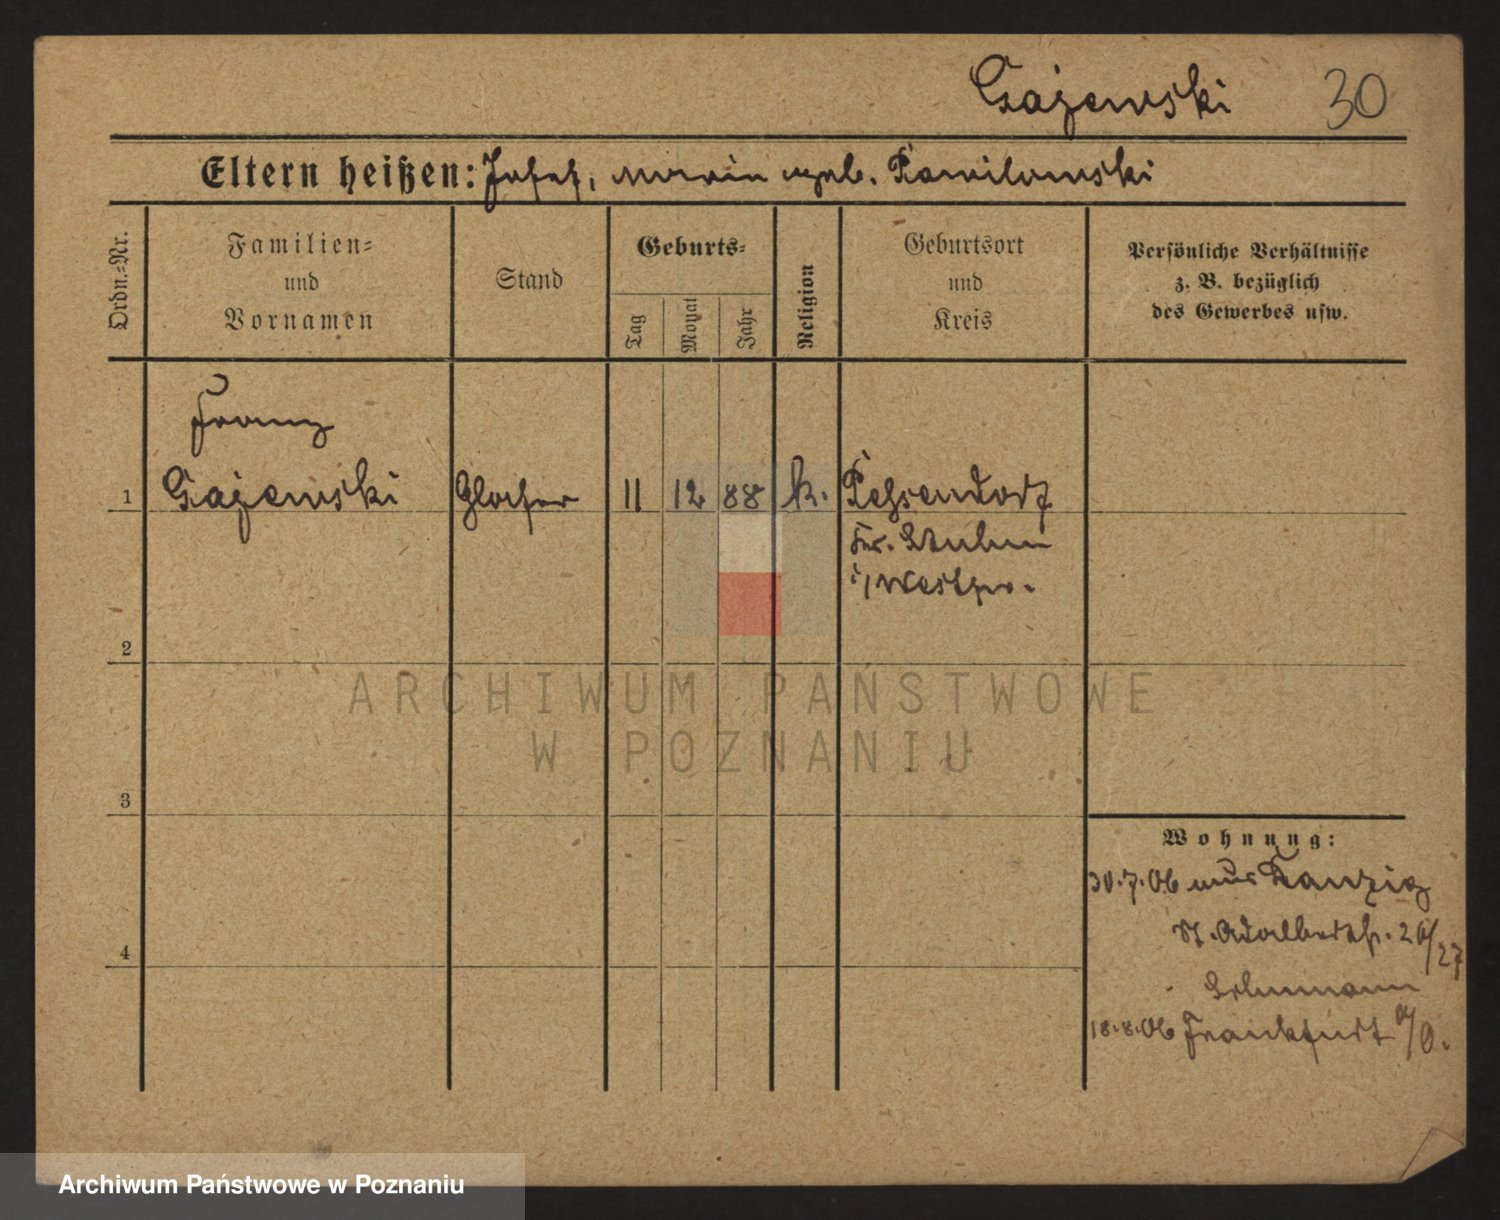 Gajewski 30
Eltern heißen: Josef, Maria geb. Pawilowski
Ordn.=Nr.
Familien=
und
Vornamen
Stand
Geburts=
Tag
Monat
Jahr
Religion
Geburtsort
und
Kreis
Persönliche Verhältnisse
z. B. bezüglich
des Gewerbes usw.
Franz
1 Gajewski Glaser 11 12 88 k.
Kr. Stuhm
i/Westpr.
2
3
4
Wohnung:
30.7.06 aus Danzig
St. Adalbertstr. 26/27
Lehmann
18.8.06 Frankfurt a/O.
ARCHIWUM PAŃSTWOWE
W POZNANIU
Archiwum Państwowe w Poznaniu